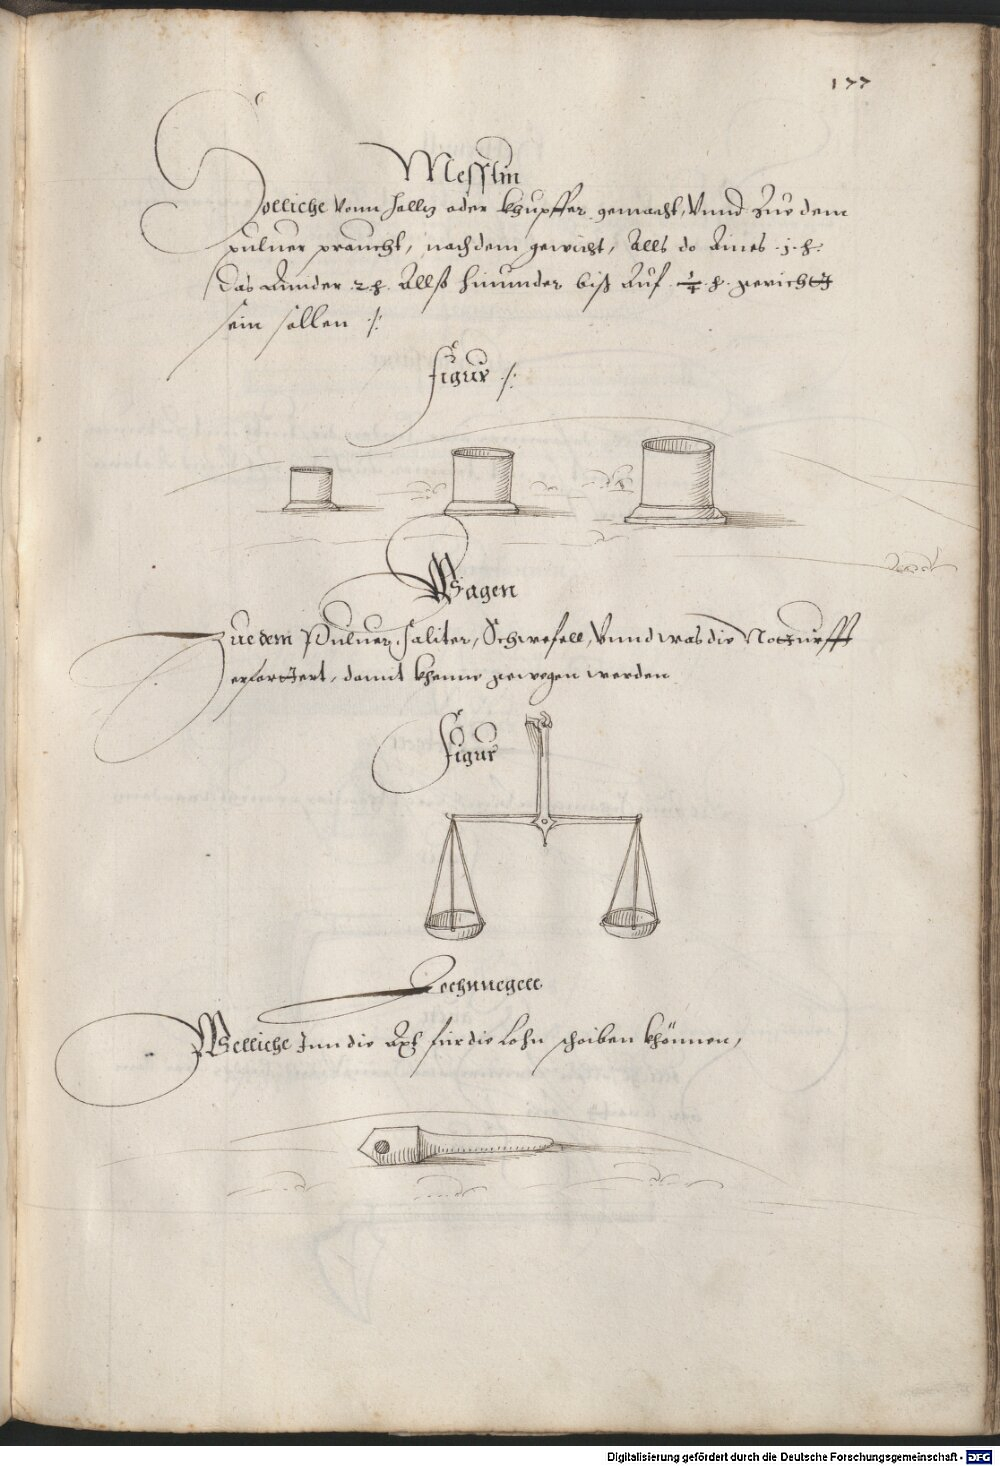 177
Messlin
Solliche vonn holltz oder khupffer gemacht, vnnd zue dem
puluer praucht, nach dem gewicht, Alls do Aines .j. ℔.
das Annder .2 ℔. Allß hinunder biß Auf ¼ ℔. gericht
sein sollen ./.
Figur ./.
Wagen
Zue dem Puluer, Saliter, Schwefell, Vnnd was die Notturfft
erfordert, damit khenne gewogen werden
Figur
Welliche Inn die Axß für die Lohn scheiben khönnen,
Digitalisierung gefördert durch die Deutsche Forschungsgemeinschaft - DFG